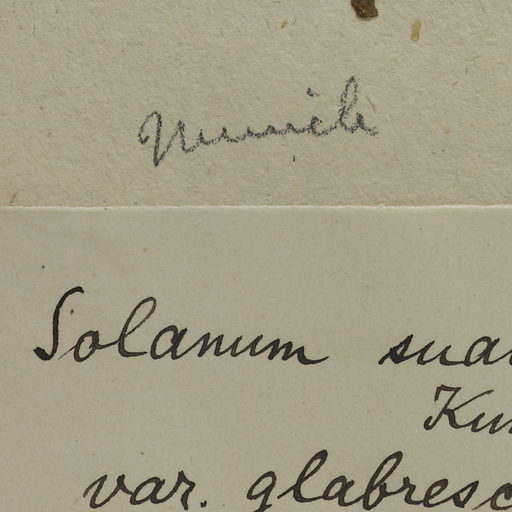 Munich
Solanum suav
Kun
var. glabresc